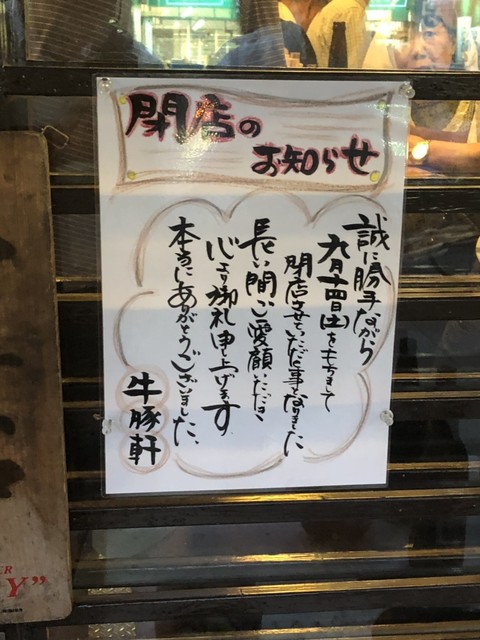 閉店の
お知らせ
誠に勝手ながら
九月十四日(土)をもちまして
閉店させていただく事となりました
長い間ご愛顧いただき
心より御礼申し上げます
本当にありがとうございました、
牛豚軒
R
Y”